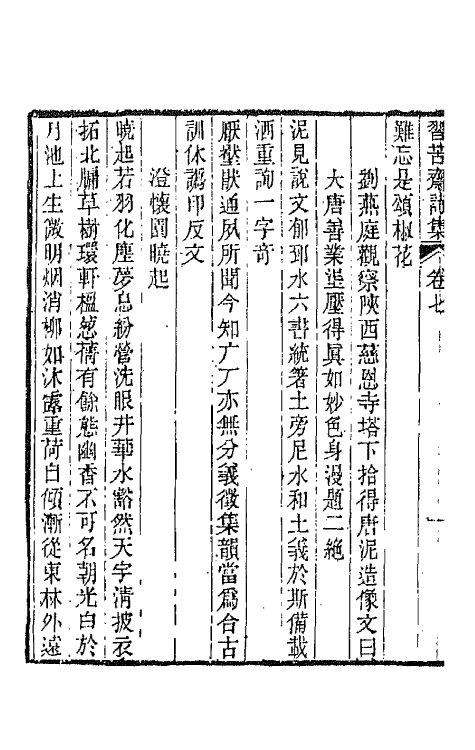 習苦齋詩集 卷七
難忘是頌椒花
劉燕庭觀察陝西慈恩寺塔下拾得唐泥造像文曰
大唐善業埿壓得眞如妙色身漫題二絶
泥見說文郁郅水六書統箸土旁尼水和土義於斯備載
酒重詢一字奇
厭壓猒通夙所聞今知广丆亦無分義徵集韻當爲合古
訓休譌印反文
澄懷園曉起
曉起若羽化塵夢忘紛營洗眼井華水豁然天宇淸披衣
拓北牖草樹環軒楹葱蒨有餘態幽香不可名朝光白於
月池上生微明烟消柳如沐露重荷自傾漸從東林外遠